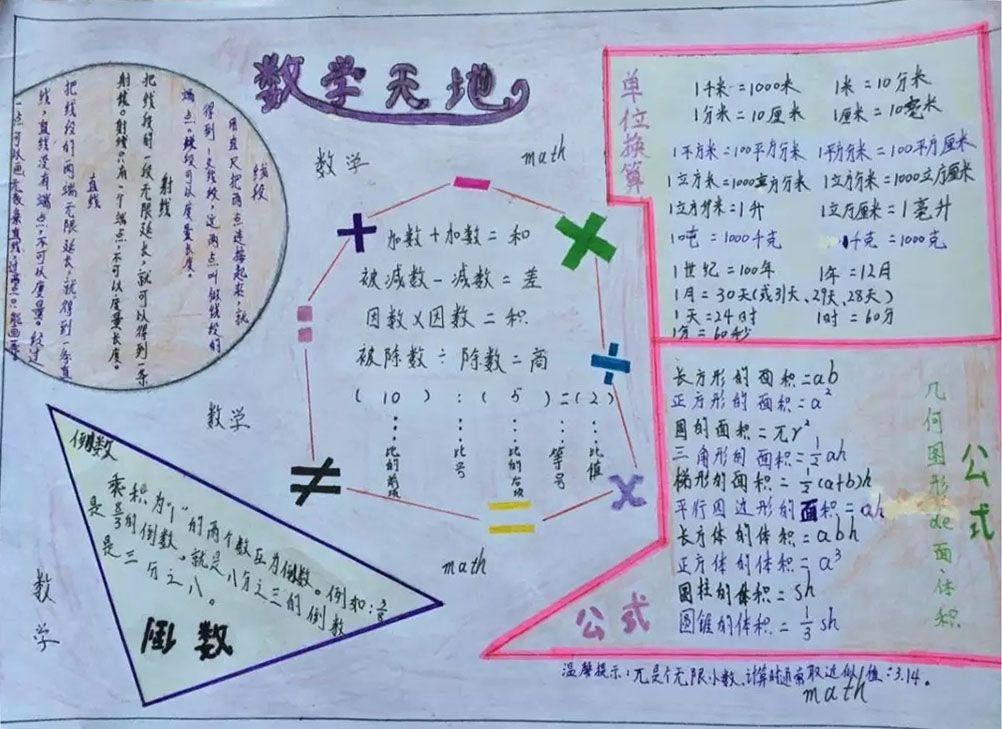 数学天地
数学
math
线段
用直尺把两点连接起来,就
得到一条线段,这两点叫做线段的
端点。线段可以度量长度。
射线
把线段的一段无限延长,就可以得到一条
射线。射线只有一个端点,不可以度量长度。
直线
把线段的两端无限延长,就得到一条直
线,直线没有端点,不可以度量。经过
一点可以画无数条直线,
加数+加数=和
被减数-减数=差
因数×因数=积
被除数÷除数=商
(10):(5)=(2)
比的前项
比号
比的后项
等号
比值
+
-
×
÷
×
=
≠
=
数学
math
数学
倒数
乘积为"1"的两个数互为倒数。例如:3/8
是8/3的倒数。就是八分之三的倒数
是三分之八。
倒数
单位换算
1千米=1000米 1米=10分米
1分米=10厘米 1厘米=10毫米
1平方米=100平方分米 1平方分米=100平方厘米
1立方米=1000立方分米 1立方分米=1000立方厘米
1立方分米=1升 1立方厘米=1毫升
10吨=1000千克 1千克=1000克
1世纪=100年 1年=12月
1月=30天(或31天、29天、28天)
1天=24时 1时=60分
1分=60秒
长方形的面积=ab
正方形的面积=a²
圆的面积=πr²
三角形的面积=1/2ah
梯形的面积=1/2(a+b)h
平行四边形的面积=ah
长方体的体积=abh
正方体的体积=a³
圆柱的体积=sh
圆锥的体积=1/3sh
几何图形de面·体积
公式
公式
温馨提示:π是个无限小数,计算时通常取近似值:3.14。
math